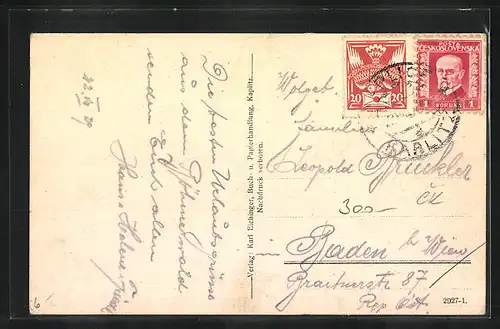 22.IV.29
Die besten Urlaubsgrüsse
aus dem Böhmerwald
senden Euch allen
Hans Helene
Verlag: Karl Eichinger, Buch- u. Papierhandlung, Kaplitz.
Nachdruck verboten.
POŠTA
ČESKOSLOVENSKÁ
20 20
1 KORUNA 1
KAPLITZ
Wolgeb.
Familie
Leopold Brückler
300-
in Baden b/ Wien
Braitnerstr. 87
Rep. Öst.
2927-1.